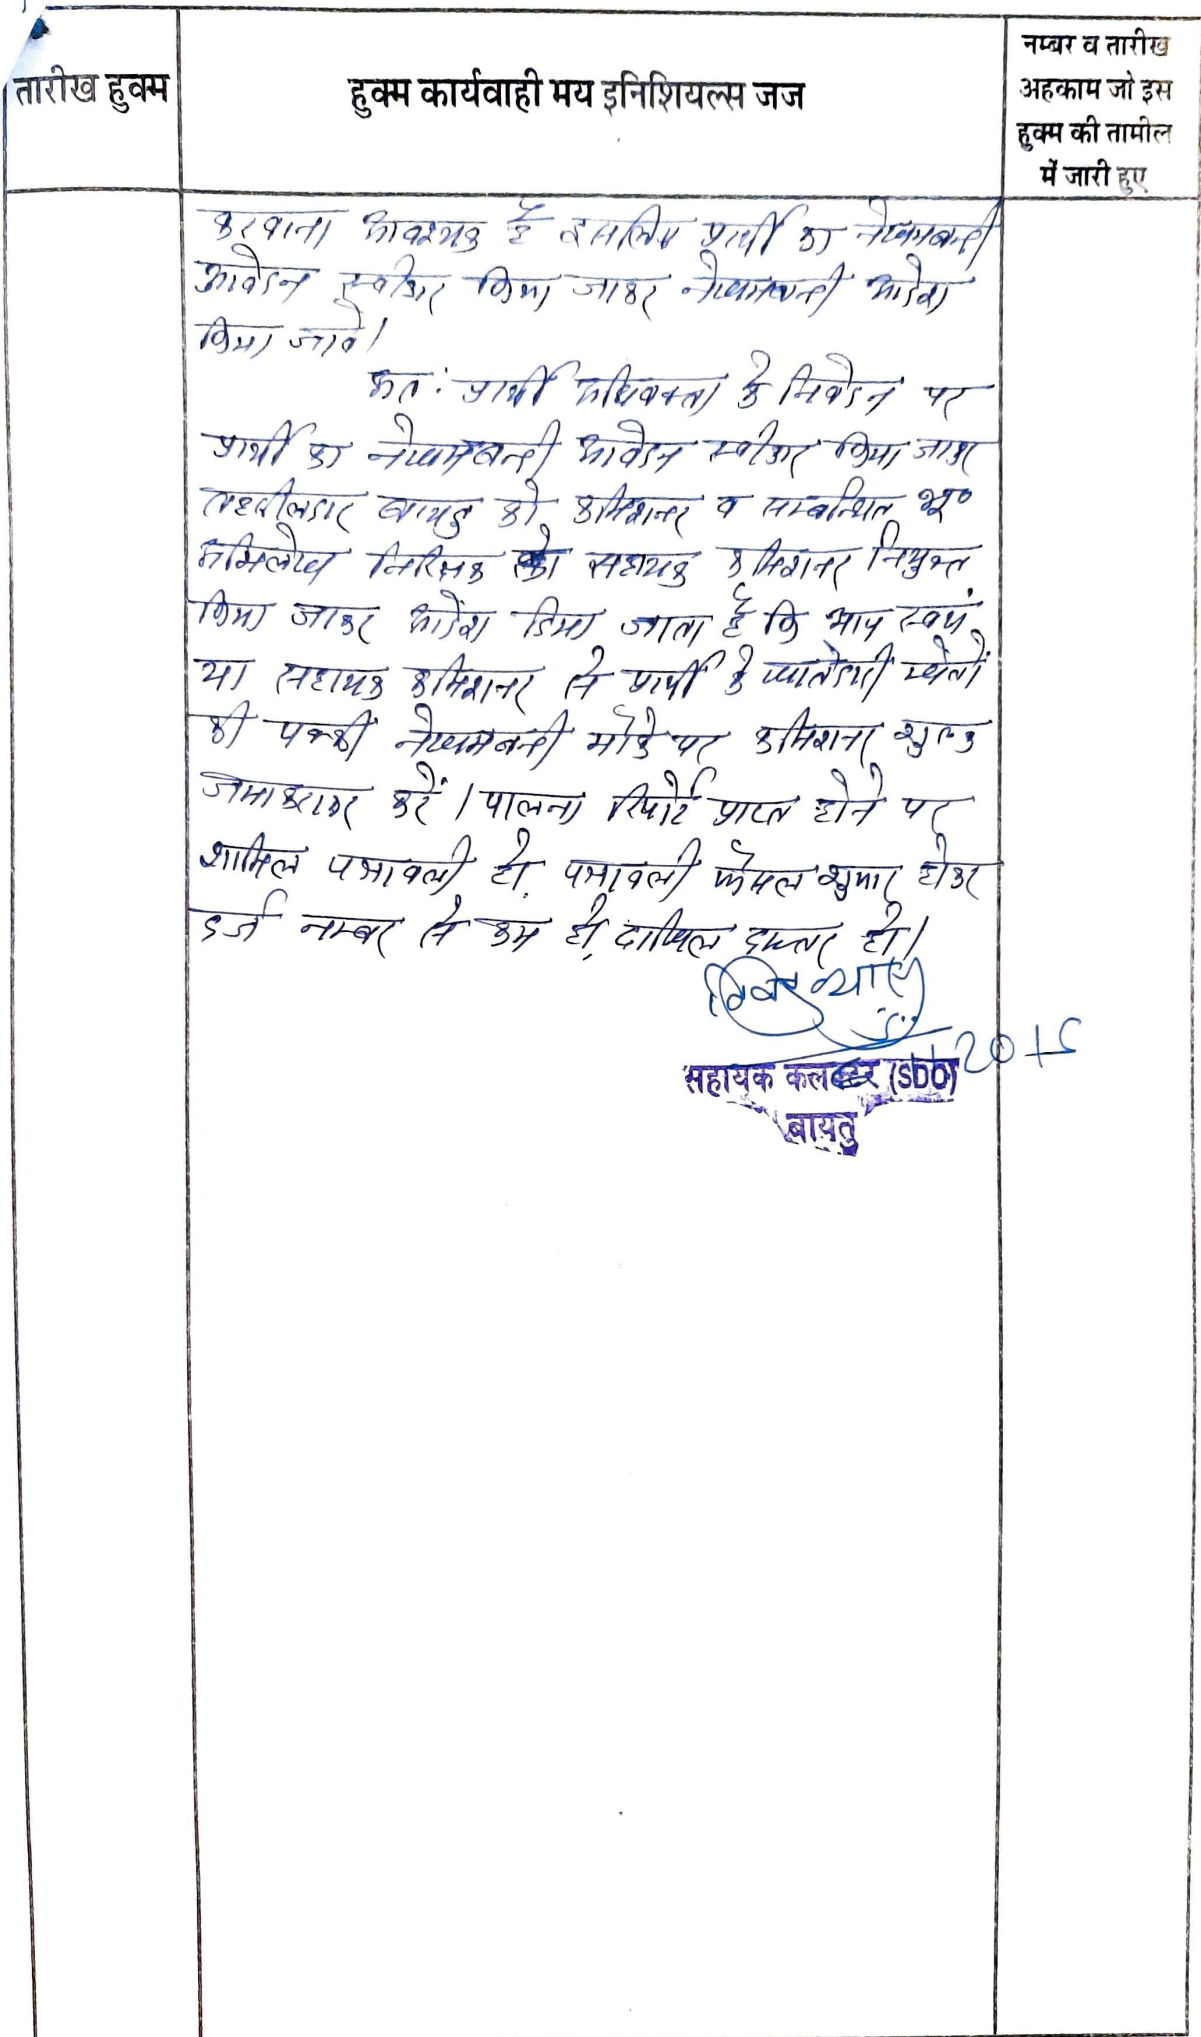 तारीख हुक्म
हुक्म कार्यवाही मय इनिशियल्स जज
नम्बर व तारीख
अहकाम जो इस
हुक्म की तामील
में जारी हुए
करवाना आवश्यक है इसलिए प्रार्थी का नेखमबन्दी
आवेदन स्वीकार किया जाकर नेखमबन्दी आदेश
किया जावे।
अत: प्रार्थी अधिवक्ता के निवेदन पर
प्रार्थी का नेखमबन्दी आवेदन स्वीकार किया जाकर
तहसीलदार बायतु को कमिशनर व सम्बन्धित भू०
अभिलेख निरिक्षक को सहायक कमिशनर नियुक्त
किया जाकर आदेश दिया जाता है कि आप स्वयं
या सहायक कमिशनर से प्रार्थी के खातेदारी खेतों
की पक्की नेखमबन्दी मौके पर कमिशनर शुल्क
जमा कराकर करें। पालना रिपोर्ट प्राप्त होने पर
शामिल पत्रावली हो, पत्रावली फैसल शुमार होकर
दर्ज नम्बर से कम हो, दाखिल दफ्तर हो।
2015
सहायक कलक्टर (sbb)
बायतु